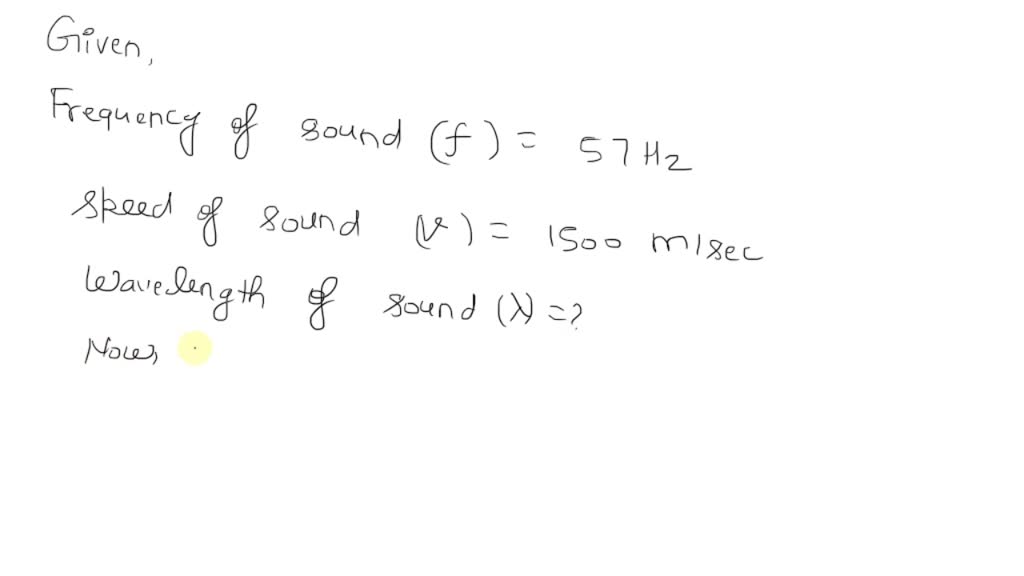 Given,
Frequency of sound (f) = 57 Hz
Speed of sound (v) = 1500 m/sec
Wavelength of sound (λ) = ?
Now,